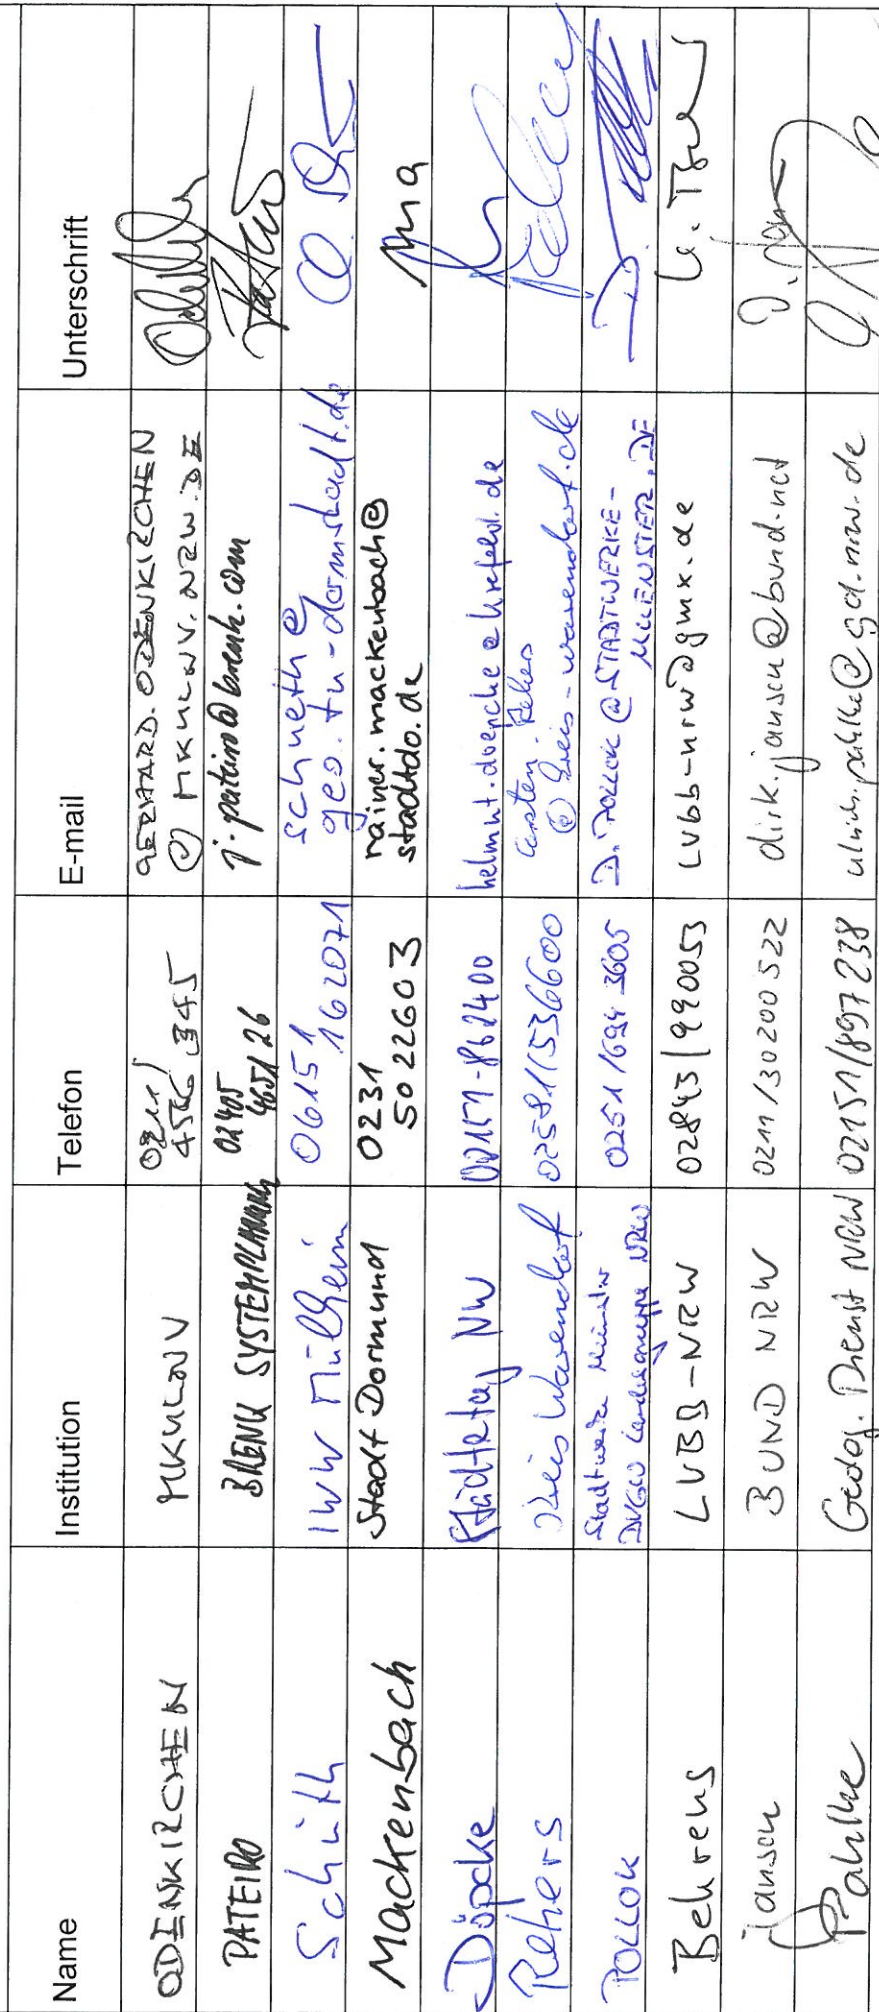 Name Institution Telefon E-mail Unterschrift
ODENKIRCHEN MKULNV 0211/ GERHARD.ODENKIRCHEN
4566 345 @ MKULNV.NRW.DE
PATEIRO BRENK SYSTEMPLANUNG 02405 j.pateiro@brenk.com
465126
Schüth IWW Mülheim 06151 schueth@
162071 geo.tu-darmstadt.de
Mackenbach Stadt Dormund 0231 rainer.mackenbach@
5022603 stadtdo.de
Döpcke Städtetag NW 02151-862400 helmut.doepcke@krefeld.de
Rehers Kreis Warendorf 02581/536600 Carsten.Rehers
@kreis-warendorf.de
POLLOK Stadtwerke Münster 0251/694 3605 D.POLLOK@STADTWERKE-
DVGW Landesgruppe NRW MUENSTER.DE
Behrens LVBB-NRW 02843/990053 LVbb-nrw@gmx.de
Jansen BUND NRW 0211/30200522 dirk.jansen@bund.net
Pahlke Geolog. Dienst NRW 02151/897238 ulrich.pahlke@gd.nrw.de